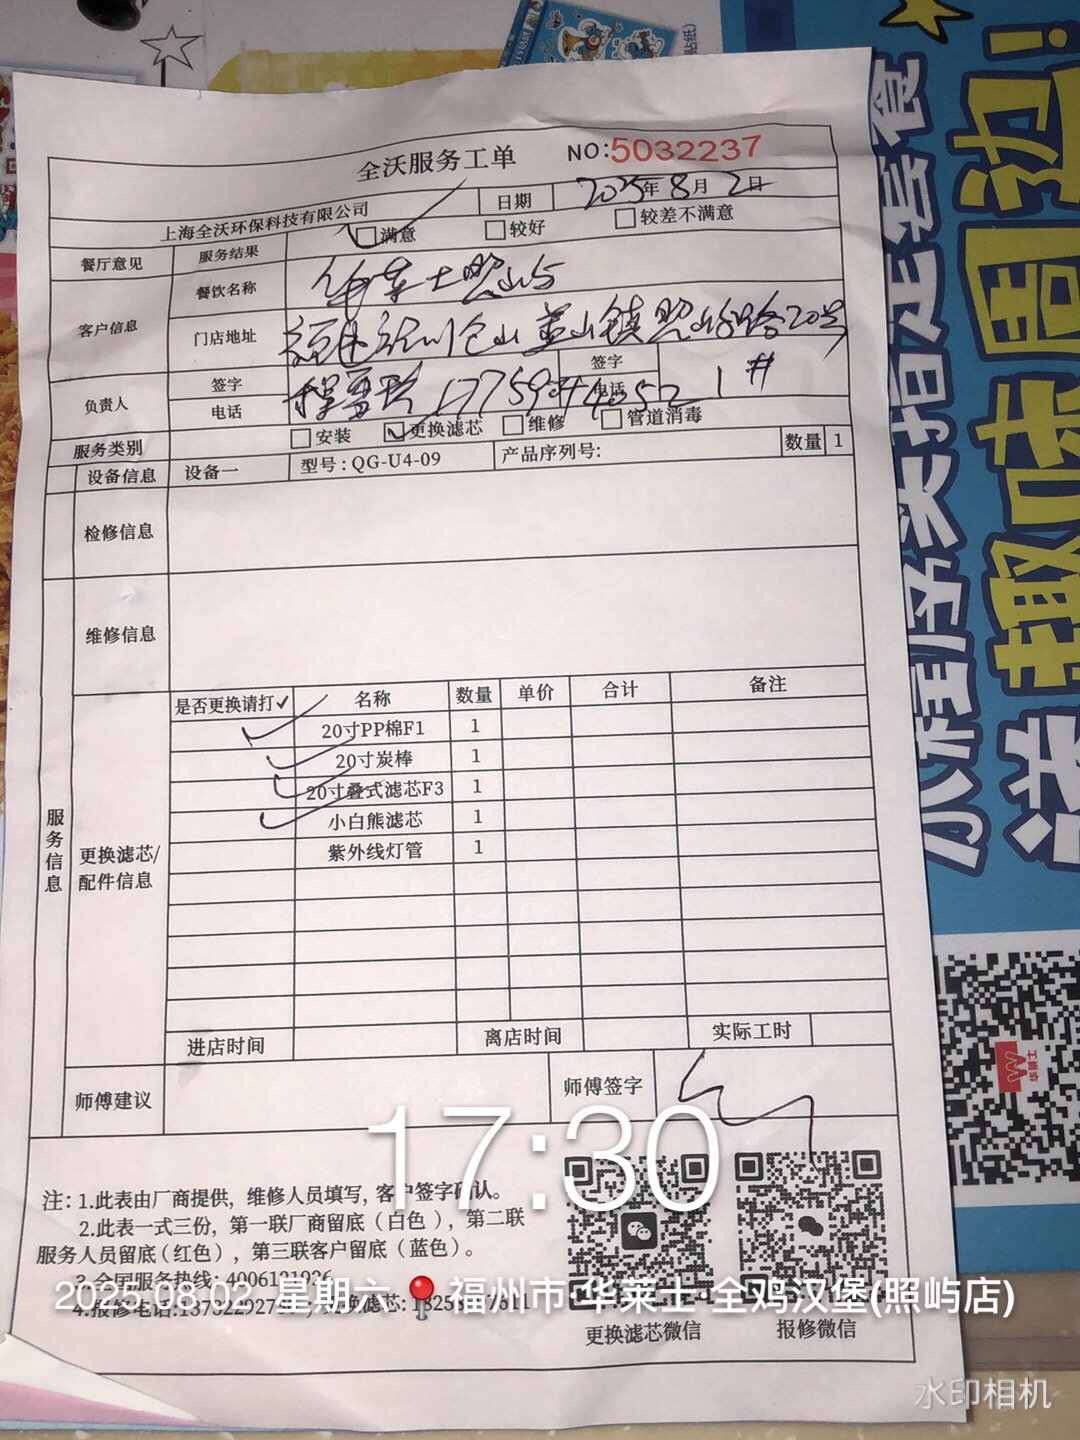 全沃服务工单 NO:5032237
上海全沃环保科技有限公司 日期 2025年8月2日
餐厅意见 服务结果 满意 较好 较差不满意
客户信息 餐饮名称 华莱士照屿
门店地址 福建福州仓山盖山镇照屿路20号
负责人 签字 签字
电话 电话 1#
服务类别 安装 更换滤芯 维修 管道消毒
设备信息 设备一 型号:QG-U4-09 产品序列号: 数量 1
检修信息
维修信息
服务信息
更换滤芯/
配件信息
是否更换请打✓ 名称 数量 单价 合计 备注
✓ 20寸PP棉F1 1
✓ 20寸炭棒 1
✓ 20寸叠式滤芯F3 1
✓ 小白熊滤芯 1
紫外线灯管 1
进店时间 离店时间 实际工时
师傅建议 师傅签字
17:30
注: 1.此表由厂商提供, 维修人员填写, 客户签字确认。
2.此表一式三份, 第一联厂商留底(白色), 第二联
服务人员留底(红色), 第三联客户留底(蓝色)。
3.全国服务热线:
4.报修电话:
更换滤芯微信 报修微信
2025.08.02 星期六 福州市·华莱士·全鸡汉堡(照屿店)
水印相机
小程序头指定套餐
趣味周边!
华莱士